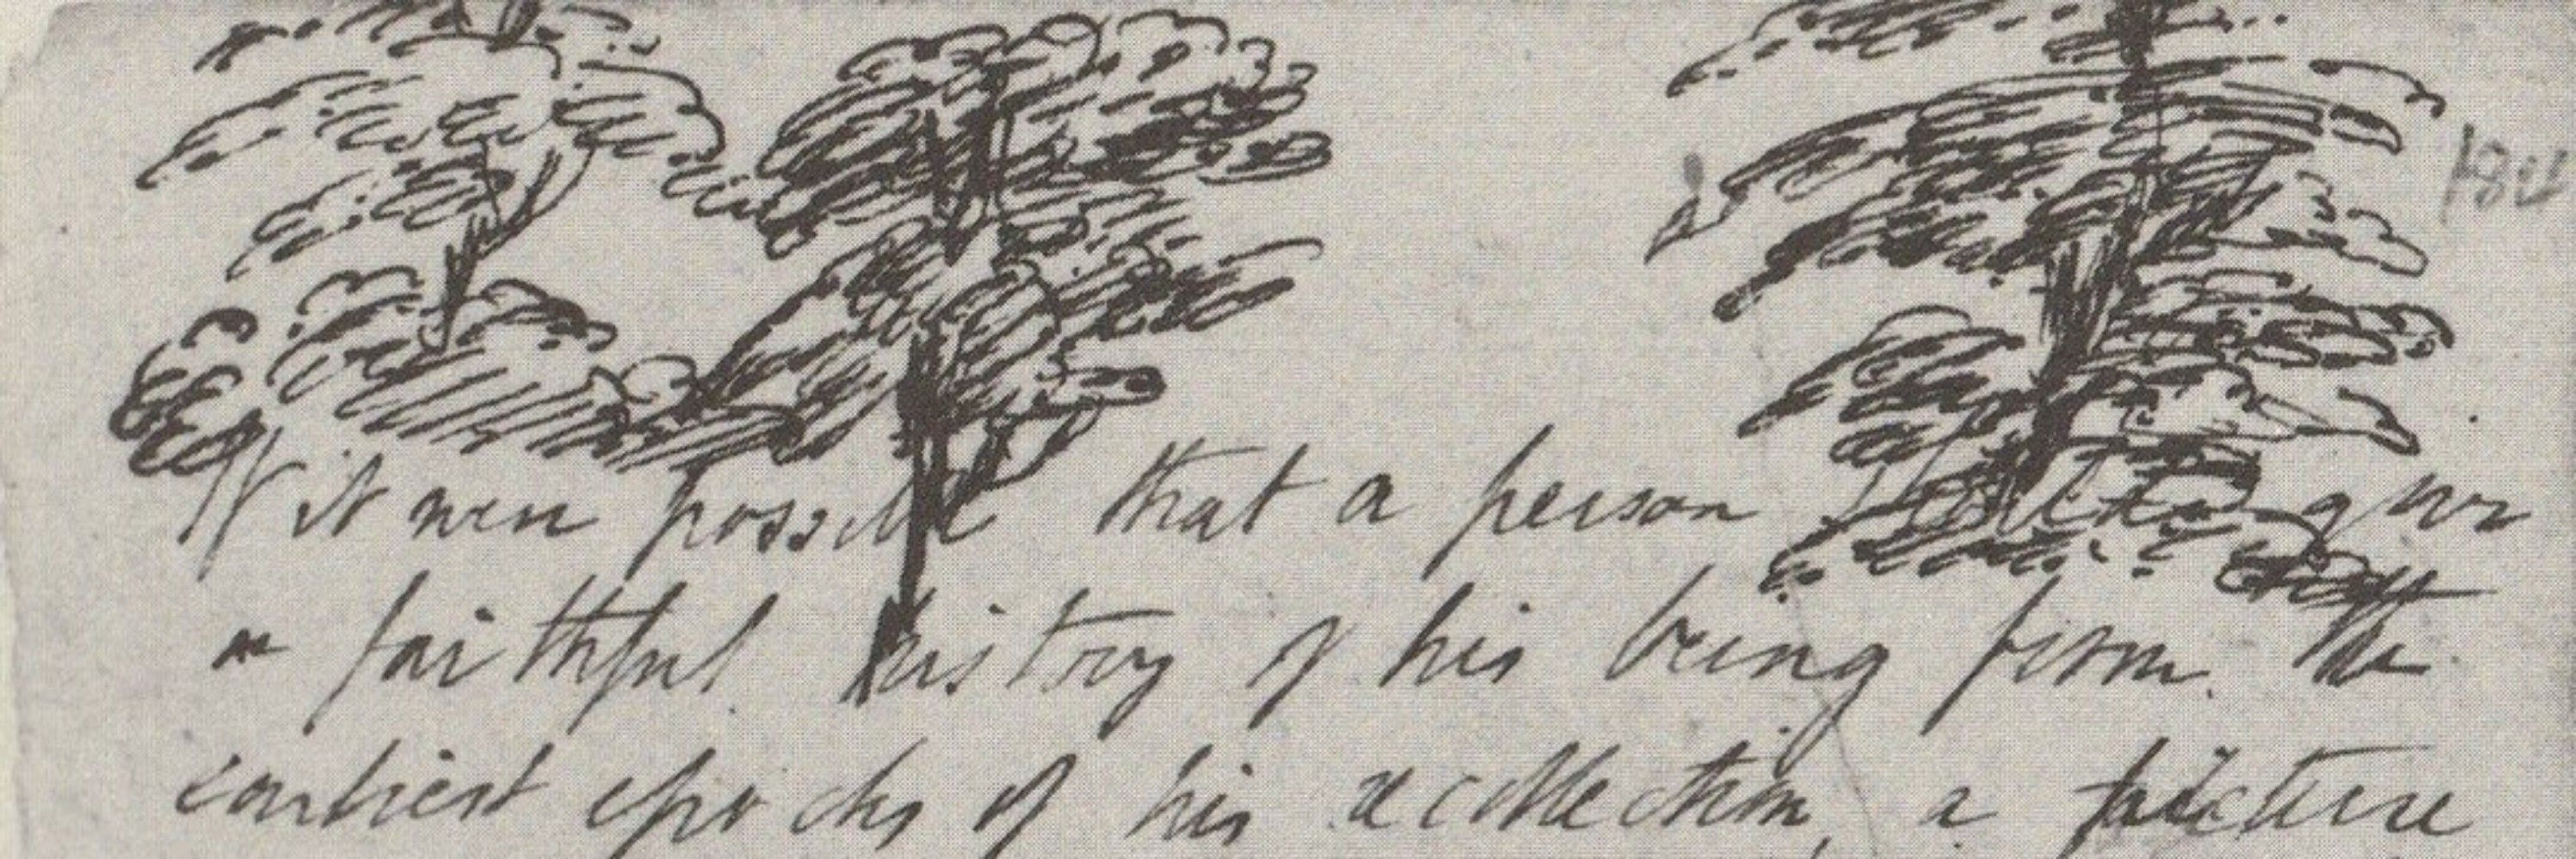 If it were possible that a person should give
a faithful history of his being from the
earliest epochs of his recollection, a picture